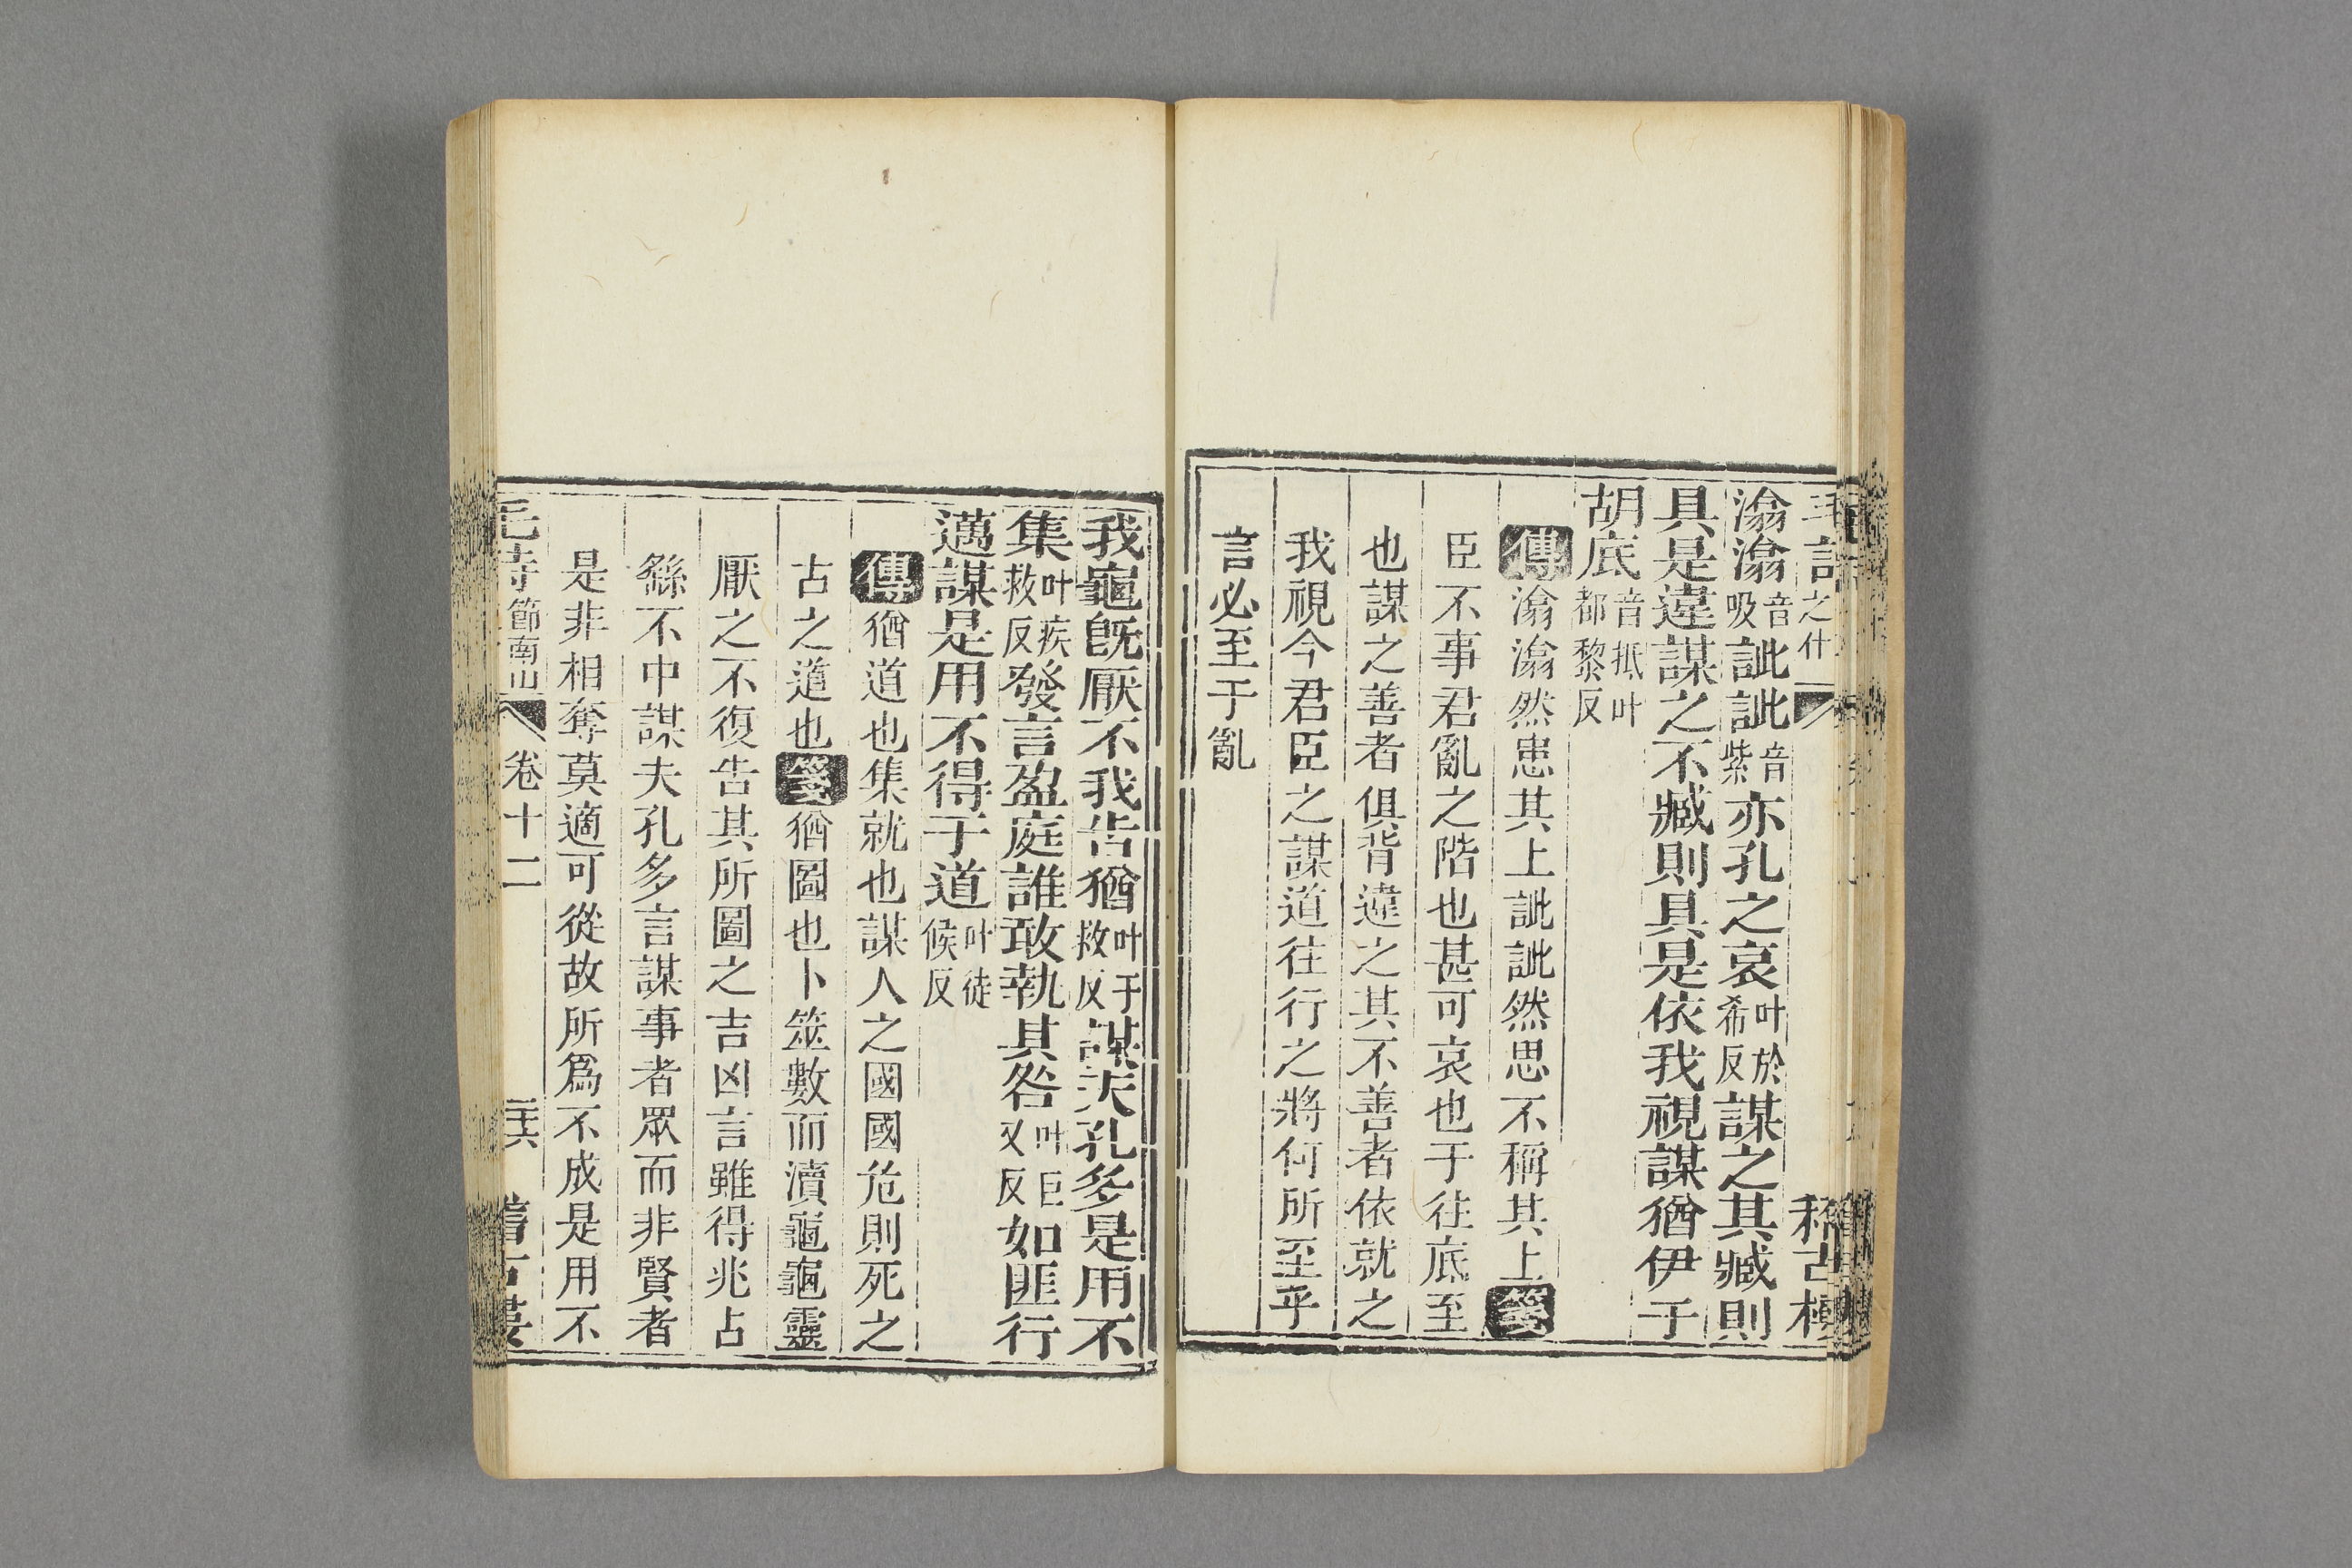 毛詩之什 稽古樓
潝潝音吸訿訿音紫亦孔之哀叶於希反謀之其臧則
具是違謀之不臧則具是依我視謀猶伊于
胡底音抵叶都黎反
傳潝潝然患其上訿訿然思不稱其上箋
臣不事君亂之階也甚可哀也于往底至
也謀之善者俱背違之其不善者依就之
我視今君臣之謀道往行之將何所至乎
言必至于亂
我龜旣厭不我告猶叶于救反謀夫孔多是用不
集叶疾救反發言盈庭誰敢執其咎叶巨又反如匪行
邁謀是用不得于道叶徒候反
傳猶道也集就也謀人之國國危則死之
古之道也箋猶圖也卜筮數而瀆龜龜靈
厭之不復告其所圖之吉凶言雖得兆占
繇不中謀夫孔多言謀事者眾而非賢者
是非相奪莫適可從故所爲不成是用不
毛詩節南山 卷十二 三六 稽古樓